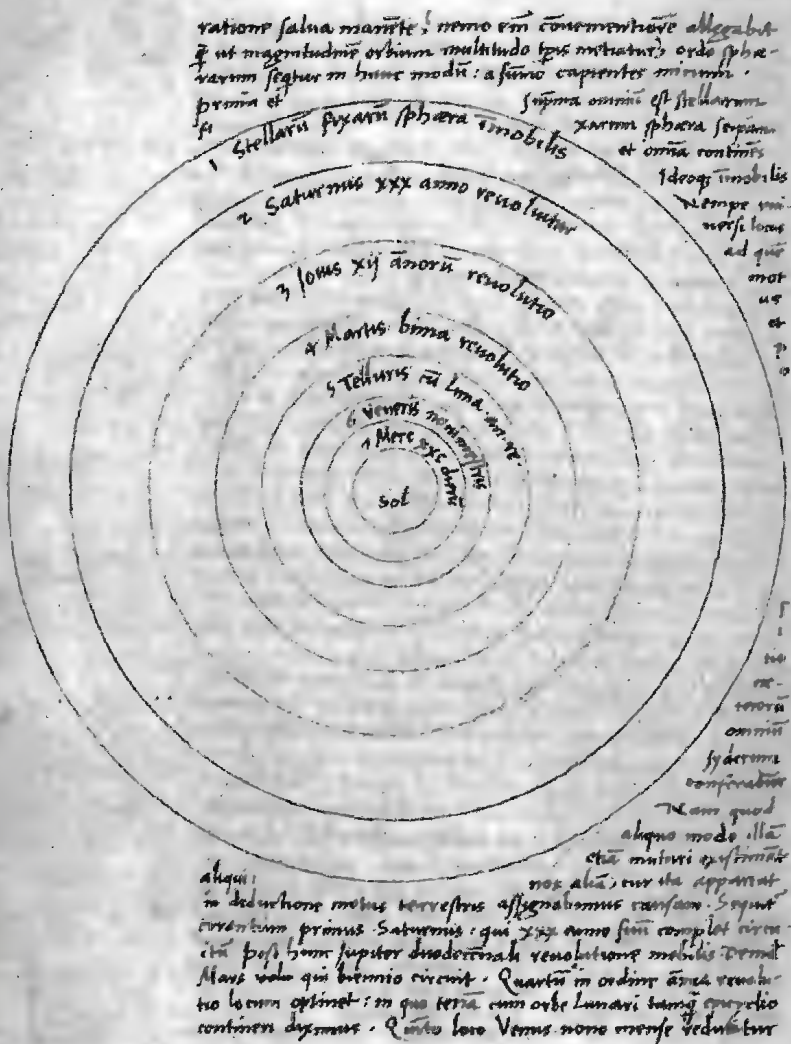 ratione salua manēte: nemo em̄ cōuenientiorē allegabit
q̄ ut magnitudinē orbium multitudo tp̄is metiatur, ordo sphæ-
rarum seqtur in hunc modū: a sūmo capientes initium.
prima et suprēma omniū est stellarum
fi xarum sphæra seipsam
et omīa continēs
Ideoqꝫ īmobilis
Nempe vni
uersi locus
ad quē
mot
us
et
p
o
1 Stellarū fixarū sphæra īmobilis
2 Saturnus xxx anno reuoluitur
3 Iouis xij ānorū reuolutio
4 Martis bima reuolutio
5 Telluris cū luna an. re.
6 Veneris nonimestris
7 Merc xxc dierū
Sol
s
i
tio
ce-
terorū
omniū
syderum
conferatur
Nam quod
aliquo modo illā
etiā mutari existimāt
aliqui: nos aliā, cur ita appareat
in deductione motus terrestris assignabimus causam. Sequit̄
errantium primus Saturnus: qui xxx anno suū complet circu
itū post hunc Jupiter duodecennali reuolutione mobilis Demū
Mars qui biennio circuit. Quartū in ordine ānua reuolu-
tio locum optinet: in quo terrā cum orbe Lunari tamq̄ epicyclio
contineri diximus. Quinto loco Venus nono mense reducitur